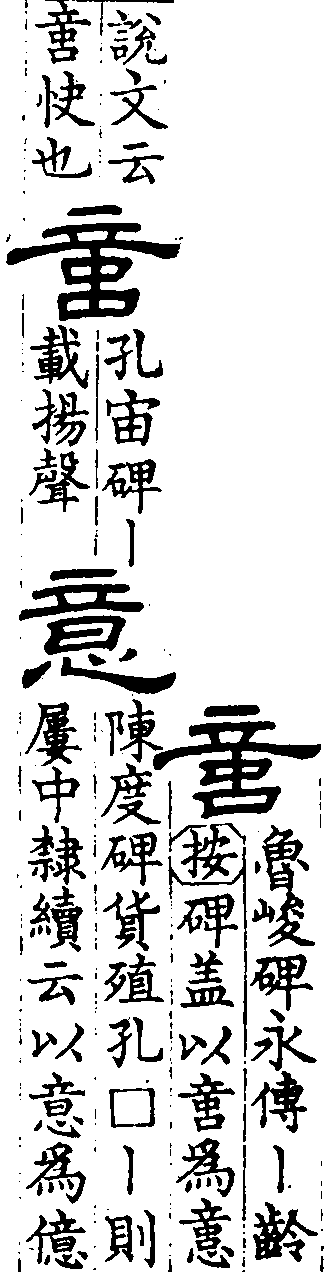 𠶷
魯峻碑永傳丨齡
按碑盖以𠶷爲𢡃
説文云
𠶷快也
𠶷
孔宙碑丨
載揚聲
意
陳度碑貨殖孔□丨則
屢中隸續云以意爲億